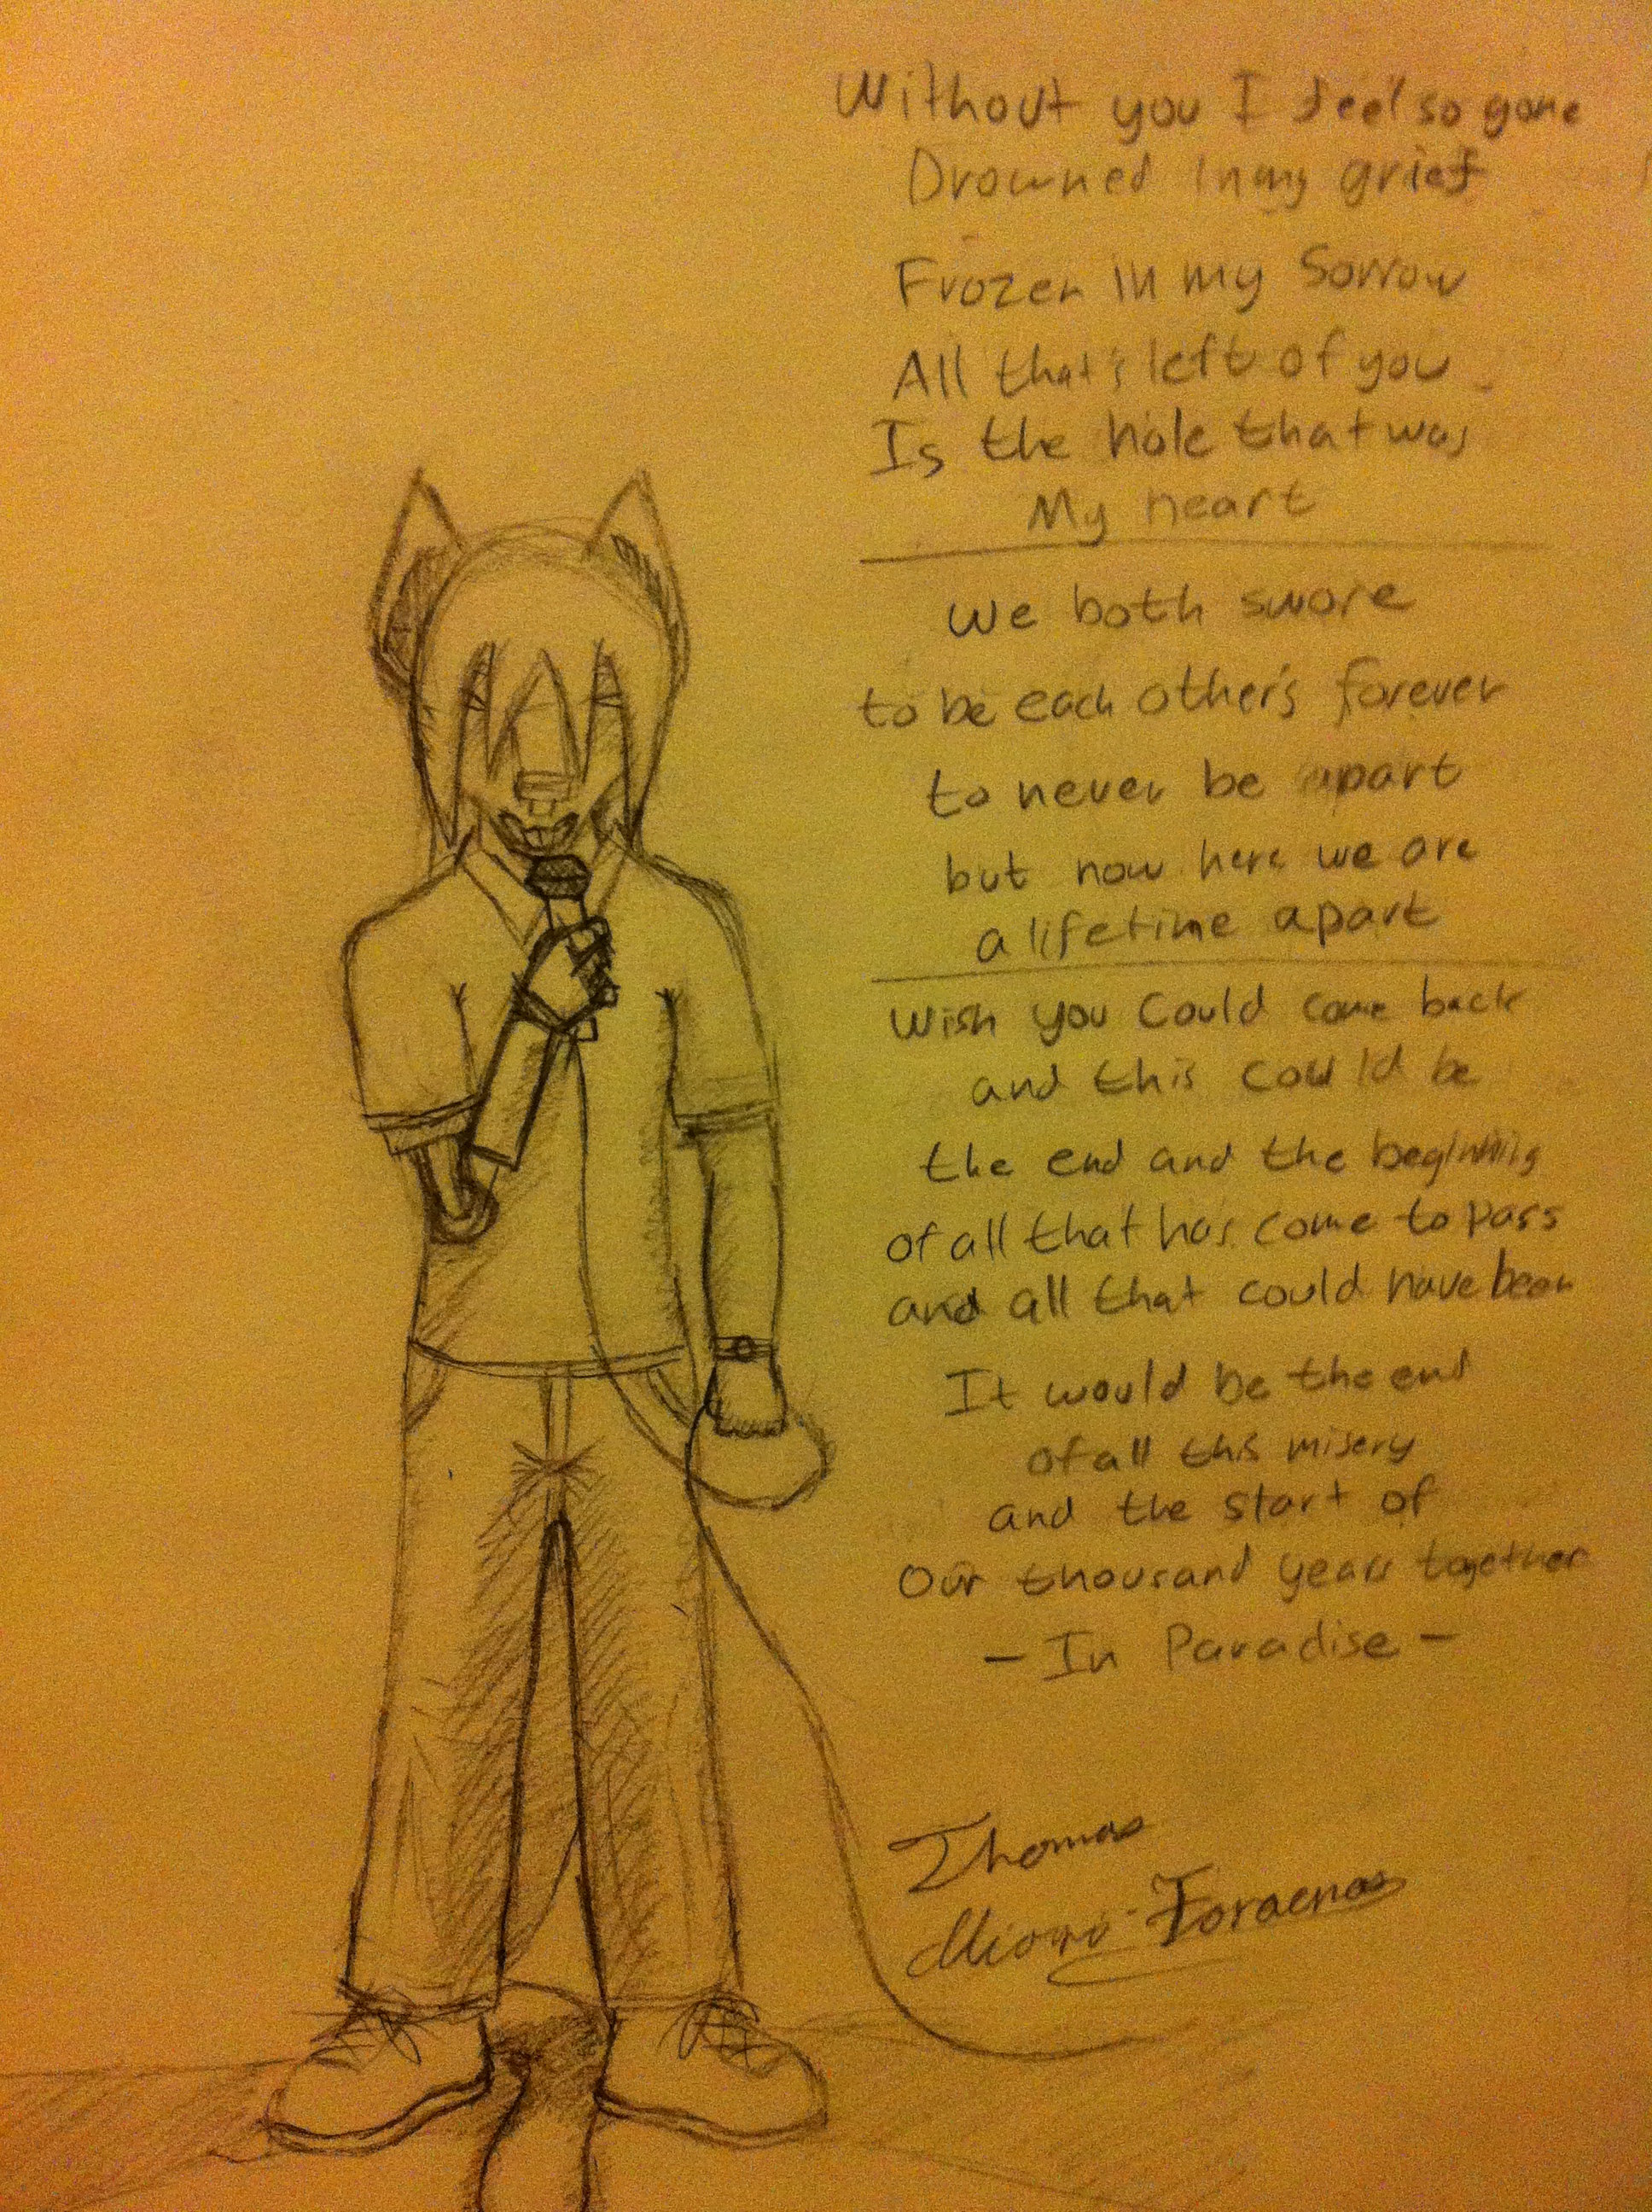 Without you I feel so gone
Drowned in my grief
Frozen in my Sorrow
All that's left of you
Is the hole that was
My heart
We both swore
to be each other's forever
to never be apart
but now here we are
a lifetime apart
Wish you Could come back
and this could be
the end and the beginning
of all that has come to pass
and all that could have been
It would be the end
of all this misery
and the start of
Our thousand years together
- In Paradise -
Thomas